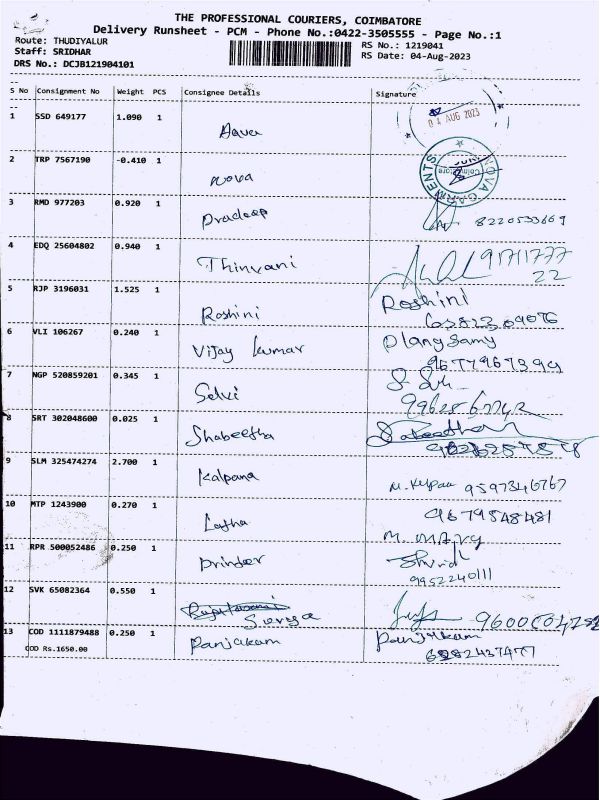 THE PROFESSIONAL COURIERS, COIMBATORE
Delivery Runsheet - PCM - Phone No.:0422-3505555 - Page No.:1
Route: THUDIYALUR
RS No.: 1219041
Staff: SRIDHAR
RS Date: 04-Aug-2023
DRS No.: DCJB121904101
S No Consignment No Weight PCS Consignee Details Signature
1 SSD 649177 1.090 1
AUG 2023
2 TRP 7567190 -0.410 1 Nova
NOVA GARMENTS
3 RMD 977203 0.920 1 Pradeep 8220533669
4 EDQ 25604802 0.940 1 Thinvani
5 RJP 3196031 1.525 1 Roshini Roshini
6 VLI 106267 0.240 1 Vijay kumar
7 NGP 520859201 0.345 1 Selvi
8 SRT 302048600 0.025 1 Shabeetha
9 SLM 325474274 2.700 1 Kalpana 9597346767
10 MTP 1243900 0.270 1 Latha 9679548481
11 RPR 500052486 0.250 1
9952240111
12 SVK 65082364 0.550 1 Surya
13 COD 1111879488 0.250 1 Panjakam Panjakam
COD Rs.1650.00